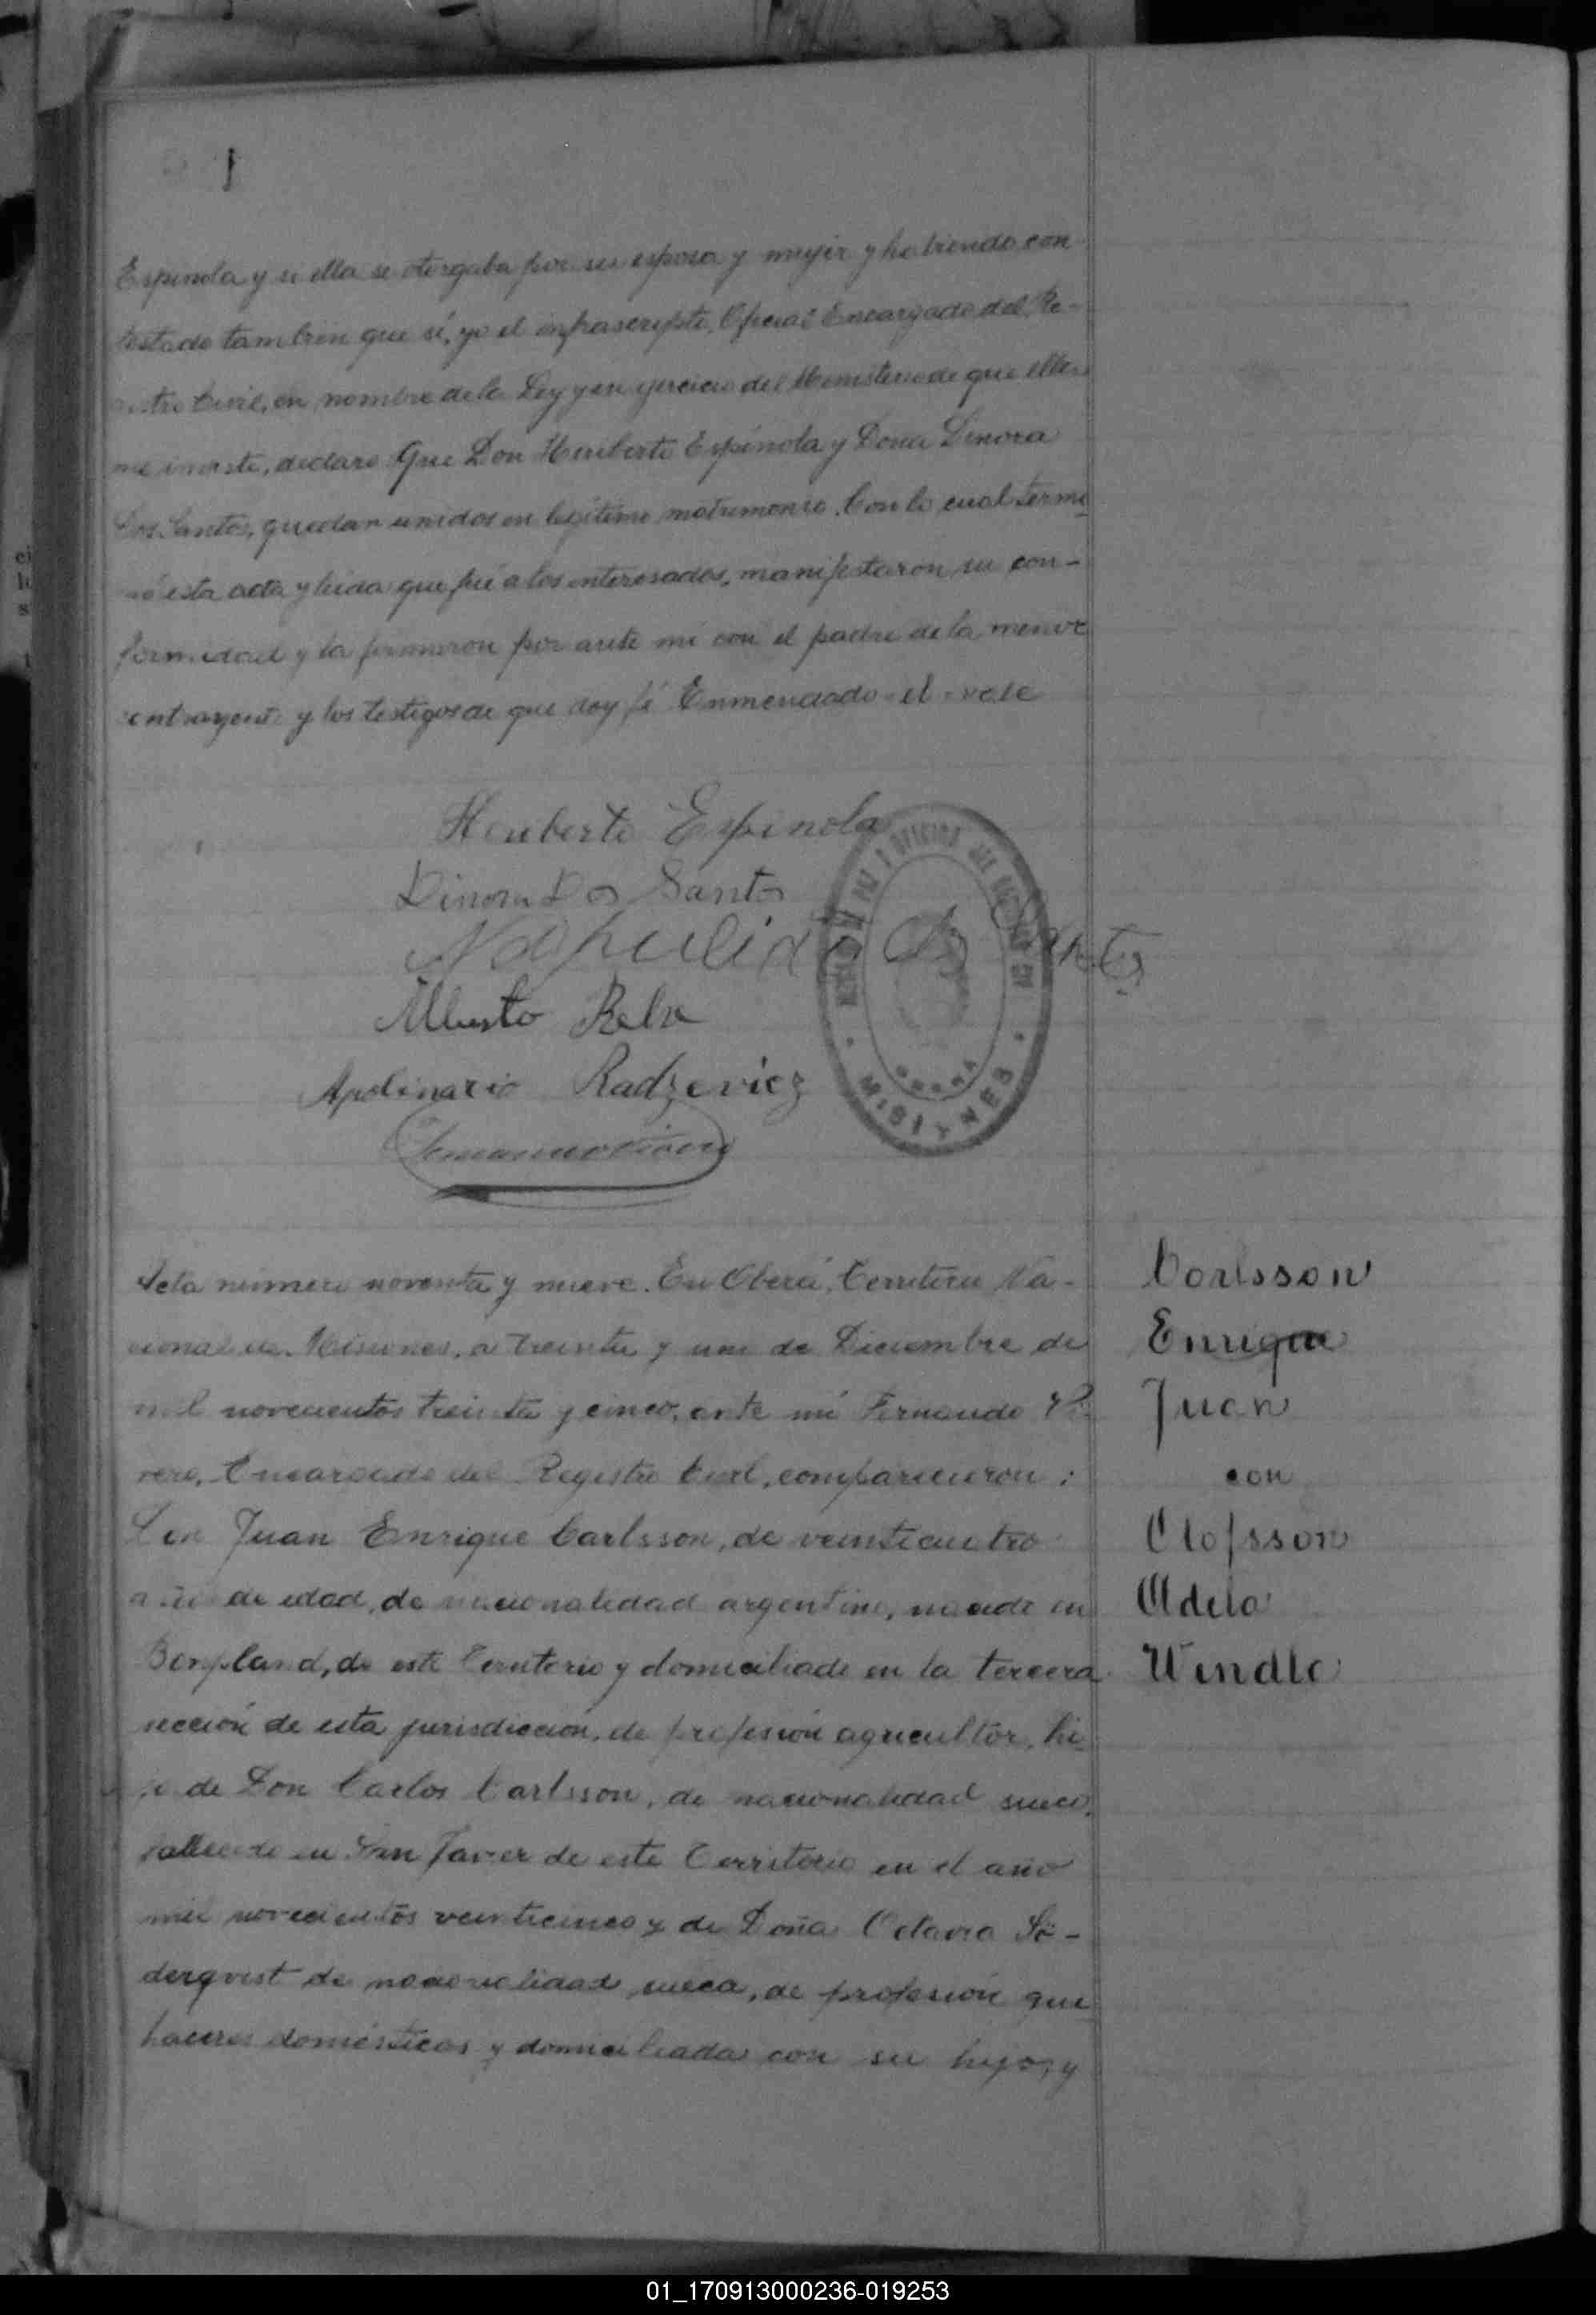 Espínola y si ella se otorgaba por su esposa y mujer y habiendo con-
testado tambien que sí, yo el infrascripto, Oficial Encargado del Re-
gistro Civil, en nombre de la Ley y en ejercicio del Ministerio de que ella
me inviste, declaro Que Don Heriberto Espínola y Doña Dinora
Dos Santos, quedan unidos en legítimo matrimonio. Con lo cual termi
nó esta acta y leida que fué a los interesados, manifestaron su con-
formidad y la firmaron por ante mí con el padre de la menor
contrayente y los testigos de que doy fé Enmendado-el-vale
Heriberto Espinola
Dinora Dos Santos
Dos Santos
Alberto
Apolinario Radzevicz
MISIONES
Acta número noventa y nueve. En Oberá, Territorio Na-
cional de Misiones, a treinta y uno de Diciembre de
mil novecientos treinta y cinco, ante mí Fernando Ri
vero, Encargado del Registro Civil, comparecieron:
Don Juan Enrique Carlsson, de veinticuatro
años de edad, de nacionalidad argentino, nacido en
Bonpland, de este Territorio y domiciliado en la tercera
sección de esta jurisdicción, de profesión agricultor, hi
jo de Don Carlos Carlsson, de nacionalidad sueco,
fallecido en San Javier de este Territorio en el año
mil novecientos veinticinco y de Doña Octavia Sö-
derqvist de nacionalidad sueca, de profesión que
haceres domésticos y domiciliada con su hijo; y
Carlsson
Enrique
Juan
con
Olofsson
Adela
Windla
01_170913000236-019253